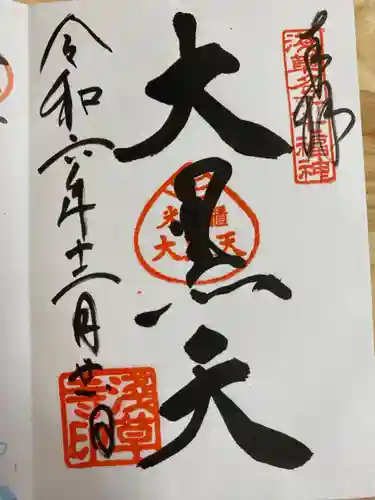 奉拝
浅草名所七福神
大黒天
米櫃
大 天
令和六年十二月廿一日
浅草
寺印